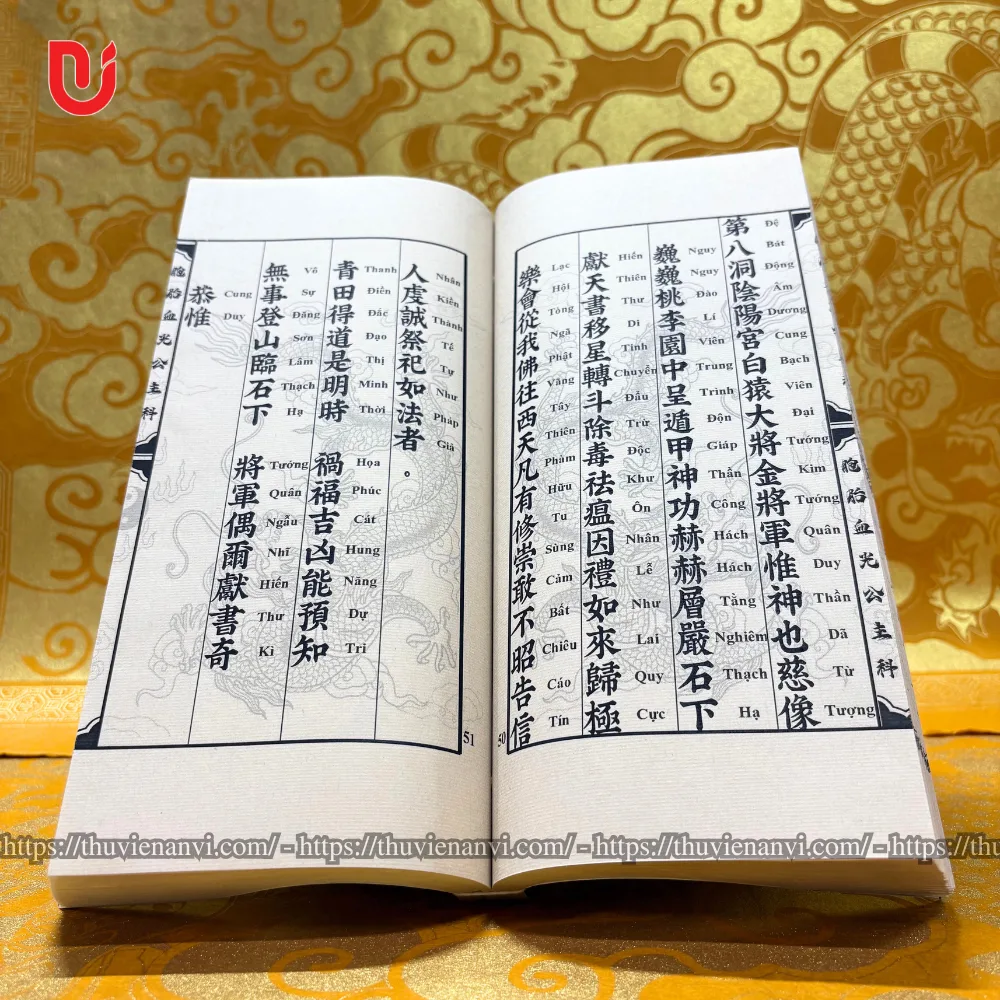 胞胎血光公主科
第八洞陰陽宮白猿大將金將軍惟神也慈像
Đệ Bát Động Âm Dương Cung Bạch Viên Đại Tướng Kim Tướng Quân Duy Thần Dã Từ Tượng
巍巍桃李園中呈遁甲神功赫赫層嚴石下
Nguy Nguy Đào Lí Viên Trung Trình Độn Giáp Thần Công Hách Hách Tằng Nghiêm Thạch Hạ
獻天書移星轉斗除毒祛瘟因禮如來歸極
Hiến Thiên Thư Di Tinh Chuyển Đẩu Trừ Độc Khư Ôn Nhân Lễ Như Lai Quy Cực
樂會從我佛往西天凡有修崇敢不昭告信
Lạc Hội Tòng Ngã Phật Vãng Tây Thiên Phàm Hữu Tu Sùng Cảm Bất Chiêu Cáo Tín
50
人虔誠祭祀如法者。
Nhân Kiền Thành Tế Tự Như Pháp Giả
青田得道是明時 禍福吉凶能預知
Thanh Điền Đắc Đạo Thị Minh Thời Họa Phúc Cát Hung Năng Dự Tri
無事登山臨石下 將軍偶爾獻書奇
Vô Sự Đăng Sơn Lâm Thạch Hạ Tướng Quân Ngẫu Nhĩ Hiến Thư Kì
恭惟
Cung Duy
胞胎血光公主科
51
https://thuvienanvi.com/ -https://thuvienanvi.com/ -https://thuvienanvi.com/ -https://thuvienanvi.com/